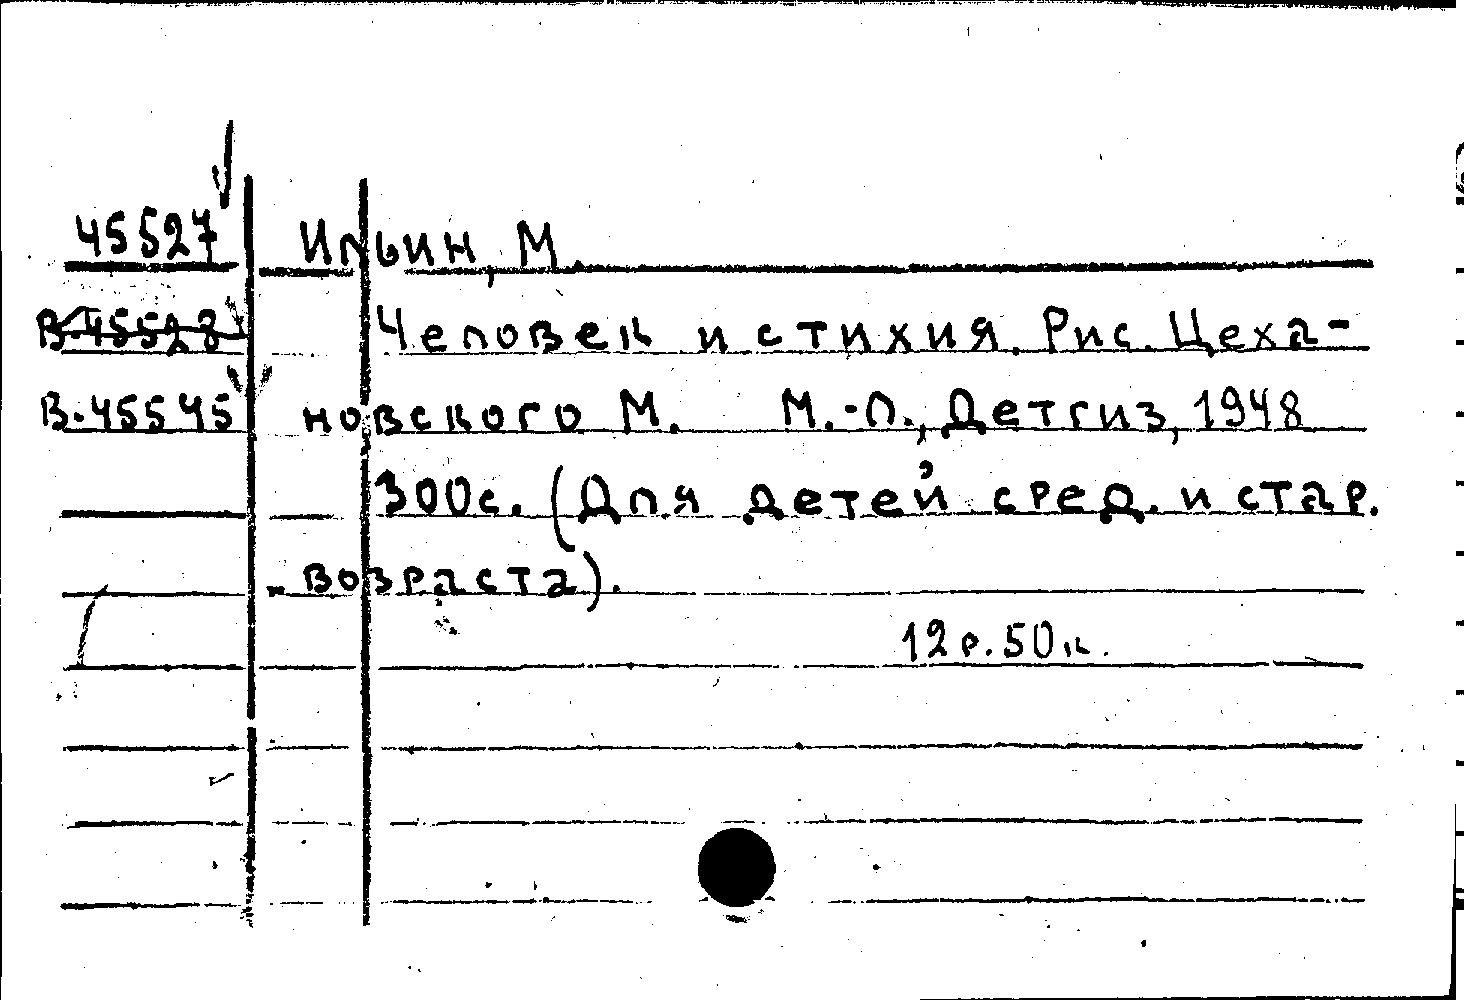 45527 Ильин, М.
В-45528 Человек и стихия. Рис. Цеха-
В-45545 новского М. М.-Л., Детгиз, 1948
300с. (Для детей сред. и стар.
возраста).
12р.50к.